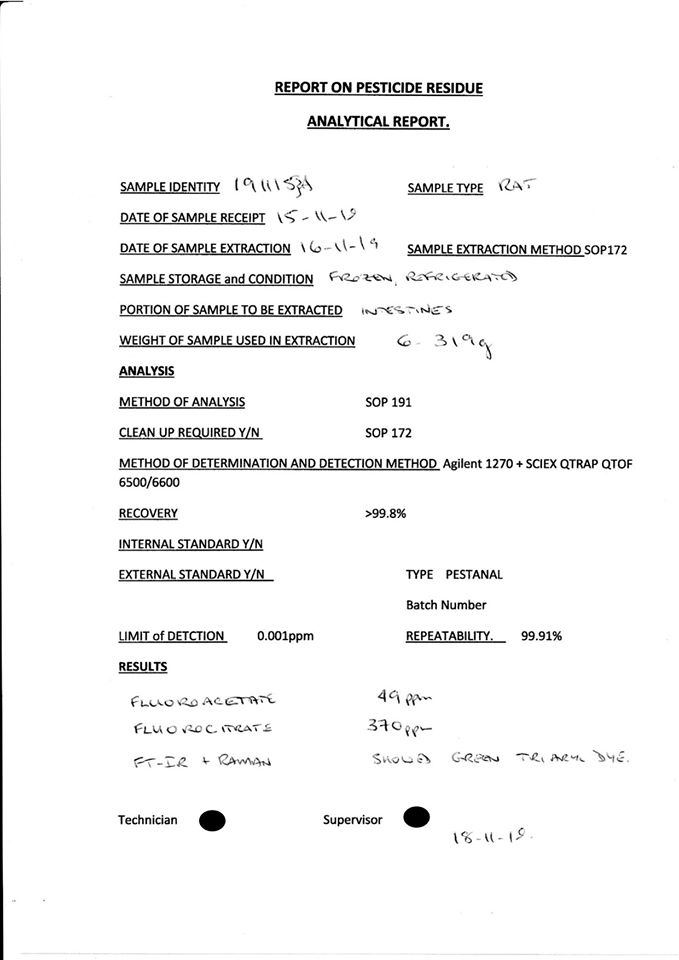 REPORT ON PESTICIDE RESIDUE
ANALYTICAL REPORT.
SAMPLE IDENTITY SAMPLE TYPE RAT
DATE OF SAMPLE RECEIPT 15-11-19
DATE OF SAMPLE EXTRACTION 16-11-19 SAMPLE EXTRACTION METHOD SOP172
SAMPLE STORAGE and CONDITION FROZEN, REFRIGERATED
PORTION OF SAMPLE TO BE EXTRACTED INTESTINES
WEIGHT OF SAMPLE USED IN EXTRACTION 6-319g
ANALYSIS
METHOD OF ANALYSIS SOP 191
CLEAN UP REQUIRED Y/N SOP 172
METHOD OF DETERMINATION AND DETECTION METHOD Agilent 1270 + SCIEX QTRAP QTOF
6500/6600
RECOVERY >99.8%
INTERNAL STANDARD Y/N
EXTERNAL STANDARD Y/N TYPE PESTANAL
Batch Number
LIMIT of DETCTION 0.001ppm REPEATABILITY. 99.91%
RESULTS
FLUOROACETATE 49ppm
FLUOROCITRATE 370ppm
FT-IR + RAMAN SHOWED GREEN TRIARYL DYE.
Technician Supervisor
18-11-19.